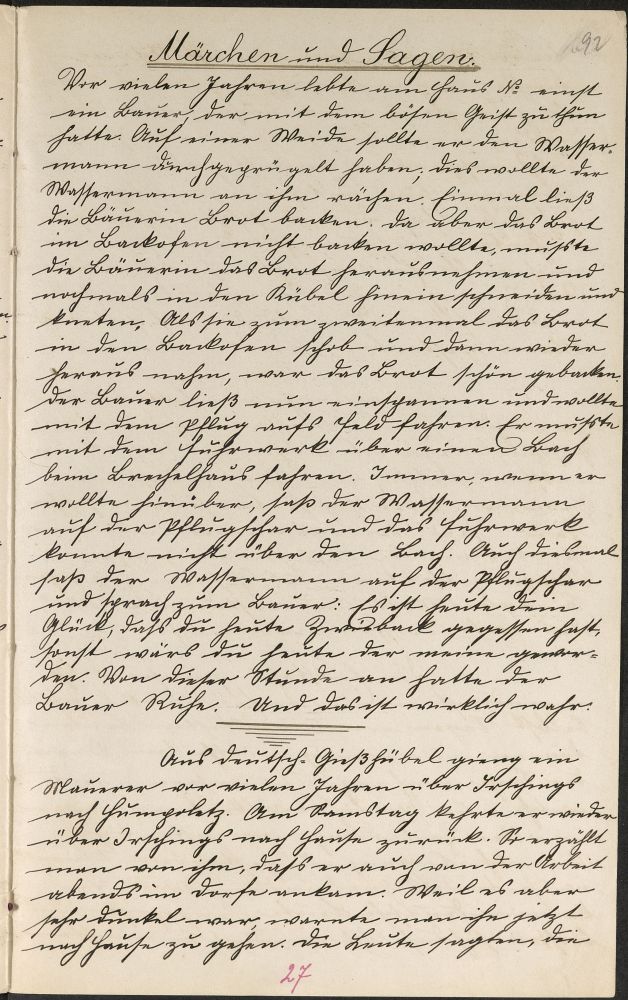 92
Märchen und Sagen.
Vor vielen Jahren lebte am Haus № einst
ein Bauer, der mit dem bösen Geist zu thun
hatte. Auf einer Weide sollte er den Wasser-
mann durchgeprügelt haben; dies wollte der
Wassermann an ihm rächen. Einmal ließ
die Bäuerin Brot backen. Da aber das Brot
im Backofen nicht backen wollte, mußte
die Bäuerin das Brot herausnehmen und
nochmals in den Kübel hinein schneiden und
kneten. Als sie zum zweitenmal das Brot
in den Backofen schob und dann wieder
heraus nahm, war das Brot schön gebacken.
Der Bauer ließ nun einspannen und wollte
mit dem Pflug aufs Feld fahren. Er mußte
mit dem Fuhrwerk über einen Bach
beim Brechelhaus fahren. Immer, wenn er
wollte hinüber, saß der Wassermann
auf der Pflugschar und das Fuhrwerk
konnte nicht über den Bach. Auch diesmal
saß der Wassermann auf der Pflugschar
und sprach zum Bauer: Es ist heute dein
Glück, daß du heute Zwieback gegessen hast,
sonst wärs du heute der meine gewor-
den. Von dieser Stunde an hatte der
Bauer Ruhe. Und das ist wirklich wahr.
Aus Deutsch-Gießhübel gieng ein
Mauerer vor vielen Jahren über Irschings
nach Humpoletz. Am Samstag kehrte er wieder
über Irschings nach Hause zurück. So erzählt
man von ihm, daß er auch von der Arbeit
abends im Dorfe ankam. Weil es aber
sehr dunkel war, warnte man ihn jetzt
nach Hause zu gehen. Die Leute sagten, die
27